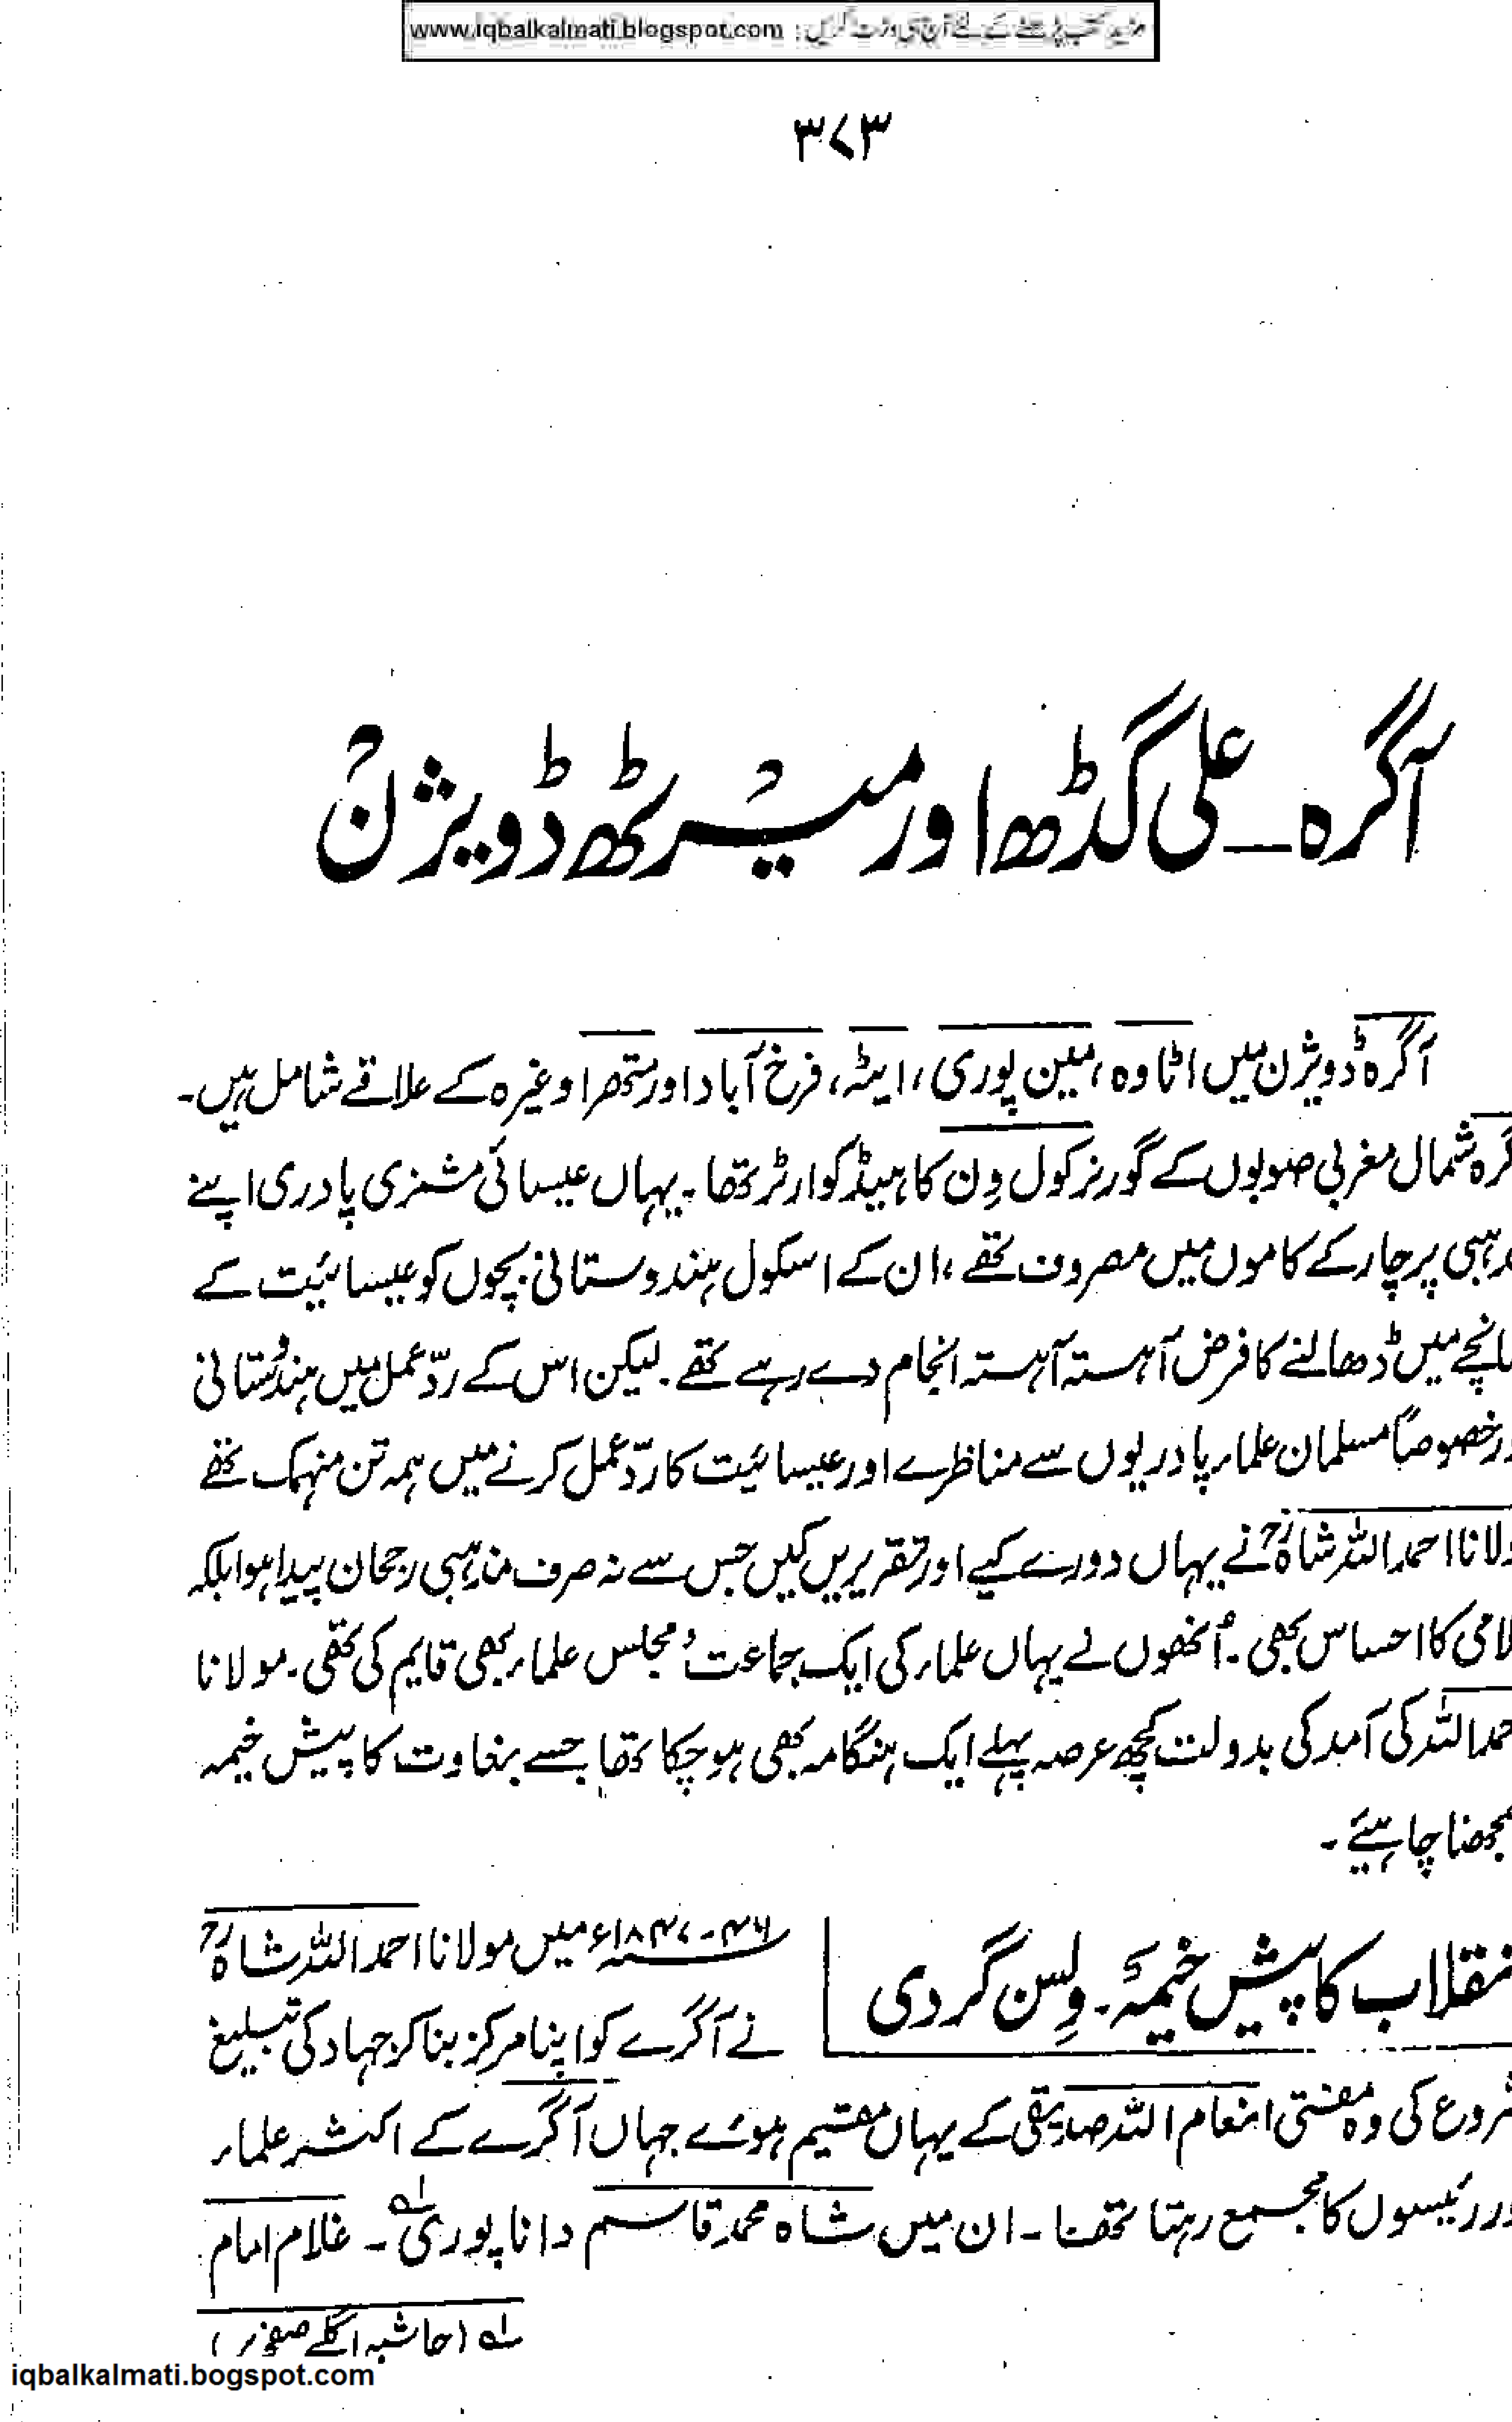 مزید کتب پڑھنے کے لئے آج ہی وزٹ کریں : www.iqbalkalmati.blogspot.com
۳۷۳
آگرہ ۔ علی گڈھ اور میرٹھ ڈویژن
آگرہ ڈویژن میں اٹاوہ ، مین پوری ، ایٹہ ، فرخ آباد اور متھرا وغیرہ کے علاقے شامل ہیں۔
گرہ شمال مغربی صوبوں کے گورنر کول وِن کا ہیڈ کوارٹر تھا ۔ یہاں عیسائی مشنری پادری اپنے
ذہبی پرچار کے کاموں میں مصروف تھے ، ان کے اسکول ہندوستانی بچوں کو عیسائیت کے
انچے میں ڈھالنے کا فرض آہستہ آہستہ انجام دے رہے تھے ۔ لیکن اس کے ردّ عمل میں ہندُستانی
ور خصوصاً مسلمان علماء پادریوں سے مناظرے اور عیسائیت کا ردّ عمل کرنے میں ہمہ تن منہمک تھے
ولانا احمد اللہ شاہؒ نے یہاں دورے کیے اور تقریریں کیں جس سے نہ صرف مذہبی رجحان پیدا ہوا بلکہ
لامی کا احساس بھی ۔ اُنھوں نے یہاں علماء کی ایک جماعت ' مجلس علماء بھی قایم کی تھی ۔ مولانا
حمد اللہ کی آمد کی بدولت کچھ عرصہ پہلے ایک ہنگامہ بھی ہو چکا تھا جسے بغاوت کا پیش خیمہ
مجھنا چاہیئے ۔
نقلاب کا پیش خیمہ ۔ وِلسن گردی
۴۶ ۔ ۱۸۴۷ء میں مولانا احمد اللہ شاہؒ
نے آگرے کو اپنا مرکز بنا کر جہاد کی تبلیغ
شروع کی وہ مفتی انعام اللہ صدیقی کے یہاں مقیم ہوئے جہاں آگرے کے اکثر علماء
ور رئیسوں کا مجمع رہتا تھا ۔ ان میں شاہ محمد قاسم داناپوری لہ ۔ غلام امام
لہ ( حاشیہ اگلے صفحہ پر )
iqbalkalmati.bogspot.com